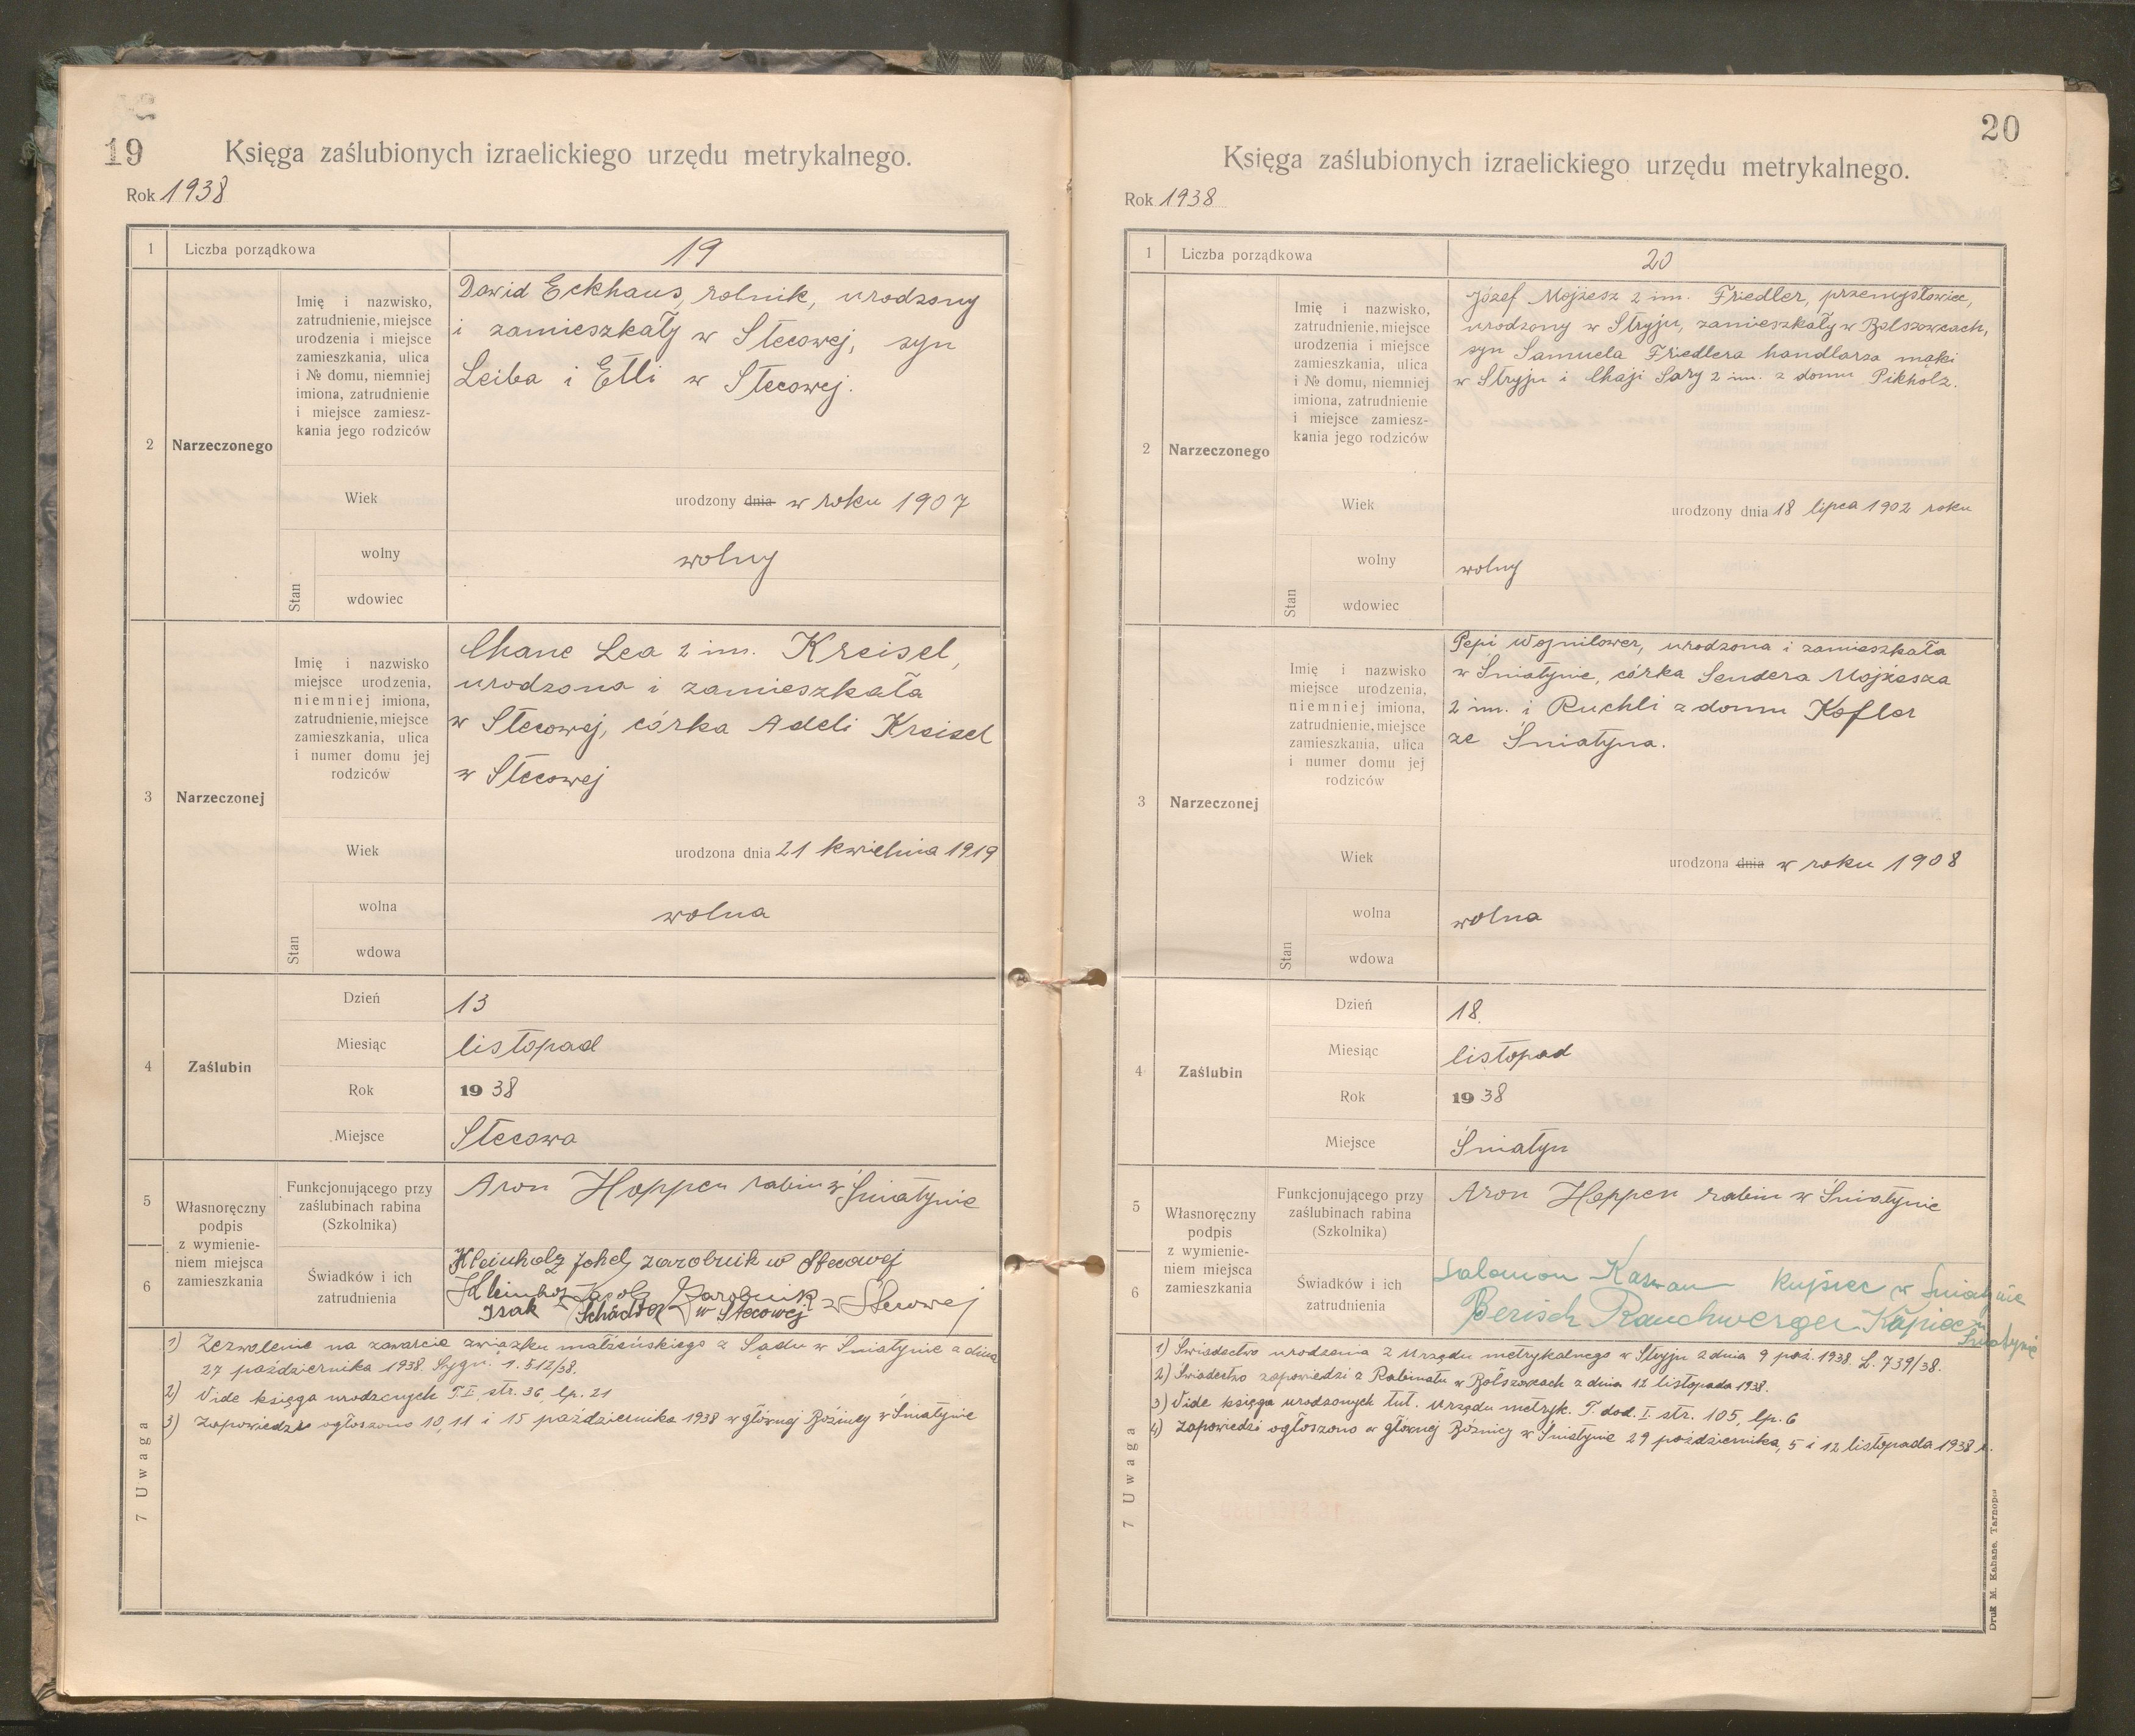 19
Księga zaślubionych izraelickiego urzędu metrykalnego.
Rok 1938
1 Liczba porządkowa 19
2 Narzeczonego
Imię i nazwisko,
zatrudnienie, miejsce
urodzenia i miejsce
zamieszkania, ulica
i № domu, niemniej
imiona, zatrudnienie
i miejsce zamiesz-
kania jego rodziców
Dawid Eckhaus, rolnik, urodzony
i zamieszkały w Stecowej, syn
Leiba i Etli w Stecowej.
Wiek urodzony dnia w roku 1907
Stan
wolny wolny
wdowiec
3 Narzeczonej
Imię i nazwisko
miejsce urodzenia,
niemniej imiona,
zatrudnienie, miejsce
zamieszkania, ulica
i numer domu jej
rodziców
Chane Lea 2 im. Kreisel,
urodzona i zamieszkała
w Stecowej, córka Adeli Kreisel
w Stecowej
Wiek urodzona dnia 21 kwietnia 1919
Stan
wolna wolna
wdowa
4 Zaślubin
Dzień 13
Miesiąc listopad
Rok 1938
Miejsce Stecowa
5
6
Własnoręczny
podpis
z wymienie-
niem miejsca
zamieszkania
Funkcjonującego przy
zaślubinach rabina
(Szkolnika)
Aron Hoppen rabin w Śniatynie
Świadków i ich
zatrudnienia
Kleinholz zarobnik w Stecowej
Zarobnik w Stecowej
Isak Schächter w Stecowej
7 Uwaga
1) Zezwolenie na zawarcie związku małżeńskiego z Sądu w Śniatynie z dnia
27 października 1938. Sygn. 1. 512/38.
2) Vide księga urodzonych T.I. str. 36, lp. 21
3) Zapowiedzi ogłoszono 10, 11 i 15 października 1938 w głównej Bóżnicy w Śniatynie
20
Księga zaślubionych izraelickiego urzędu metrykalnego.
Rok 1938
1 Liczba porządkowa 20
2 Narzeczonego
Imię i nazwisko,
zatrudnienie, miejsce
urodzenia i miejsce
zamieszkania, ulica
i № domu, niemniej
imiona, zatrudnienie
i miejsce zamiesz-
kania jego rodziców
Józef Mojżesz 2 im. Friedler, przemysłowiec,
urodzony w Stryju, zamieszkały w Bolszowcach,
syn Samuela Friedlera handlarza mąki
w Stryju i Chaji Sary 2 im. z domu Pikholz.
Wiek urodzony dnia 18 lipca 1902 roku
Stan
wolny wolny
wdowiec
3 Narzeczonej
Imię i nazwisko
miejsce urodzenia,
niemniej imiona,
zatrudnienie, miejsce
zamieszkania, ulica
i numer domu jej
rodziców
Pepi Wojnilower, urodzona i zamieszkała
w Śniatynie, córka Sendera Mojżesza
2 im. i Ruchli z domu Kofler
ze Śniatyna.
Wiek urodzona dnia w roku 1908
Stan
wolna wolna
wdowa
4 Zaślubin
Dzień 18.
Miesiąc listopad
Rok 1938
Miejsce Śniatyn
5
6
Własnoręczny
podpis
z wymienie-
niem miejsca
zamieszkania
Funkcjonującego przy
zaślubinach rabina
(Szkolnika)
Aron Hoppen rabin w Śniatynie
Świadków i ich
zatrudnienia
Salamon Kupiec w Śniatynie
Berisch Rauchwerger Kupiec w
Śniatynie
7 Uwaga
1) Świadectwo urodzenia z Urzędu metrykalnego w Stryju z dnia 9 paź. 1938. L. 739/38.
2) Świadectwo zapowiedzi z Rabinatu w Bolszowcach z dnia 12 listopada 1938.
3) Vide księga urodzonych tut. Urzędu metryk. T. dod. I. str. 105, lp. 6
4) Zapowiedzi ogłoszono w głównej Bóżnicy w Śniatynie 29 października, 5 i 12 listopada 1938 r.
Druk M. Kahane, Tarnopol